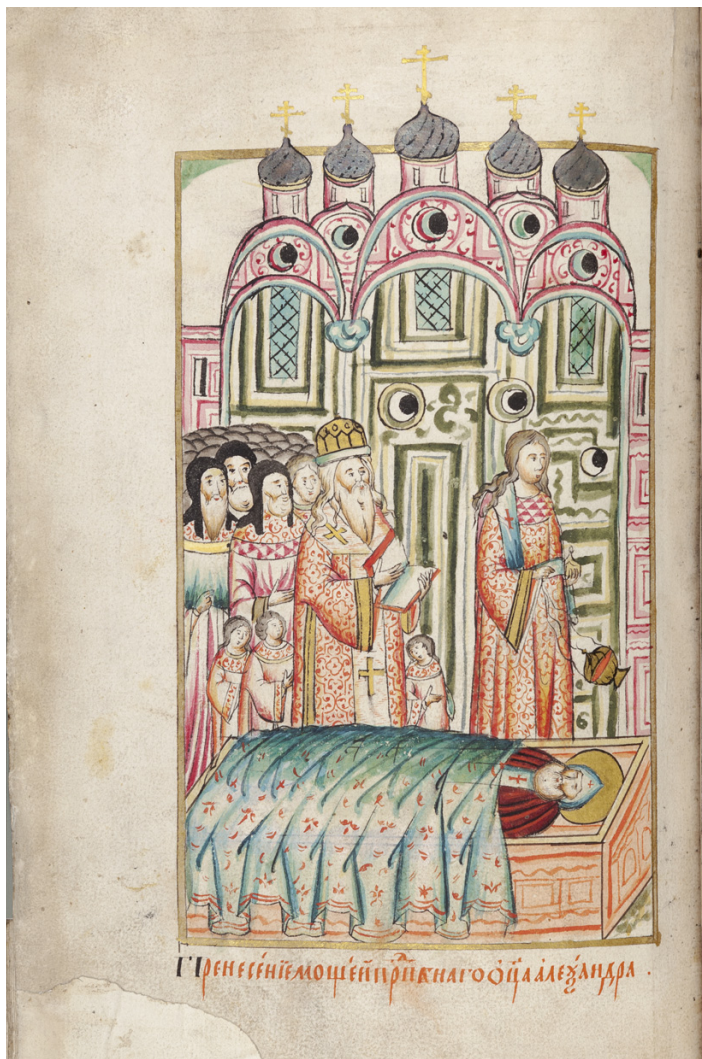 Пренесе́нїе моще́й прⷣпⷣбнаго ѻ҆ц҃а а҆леѯа́ндра .